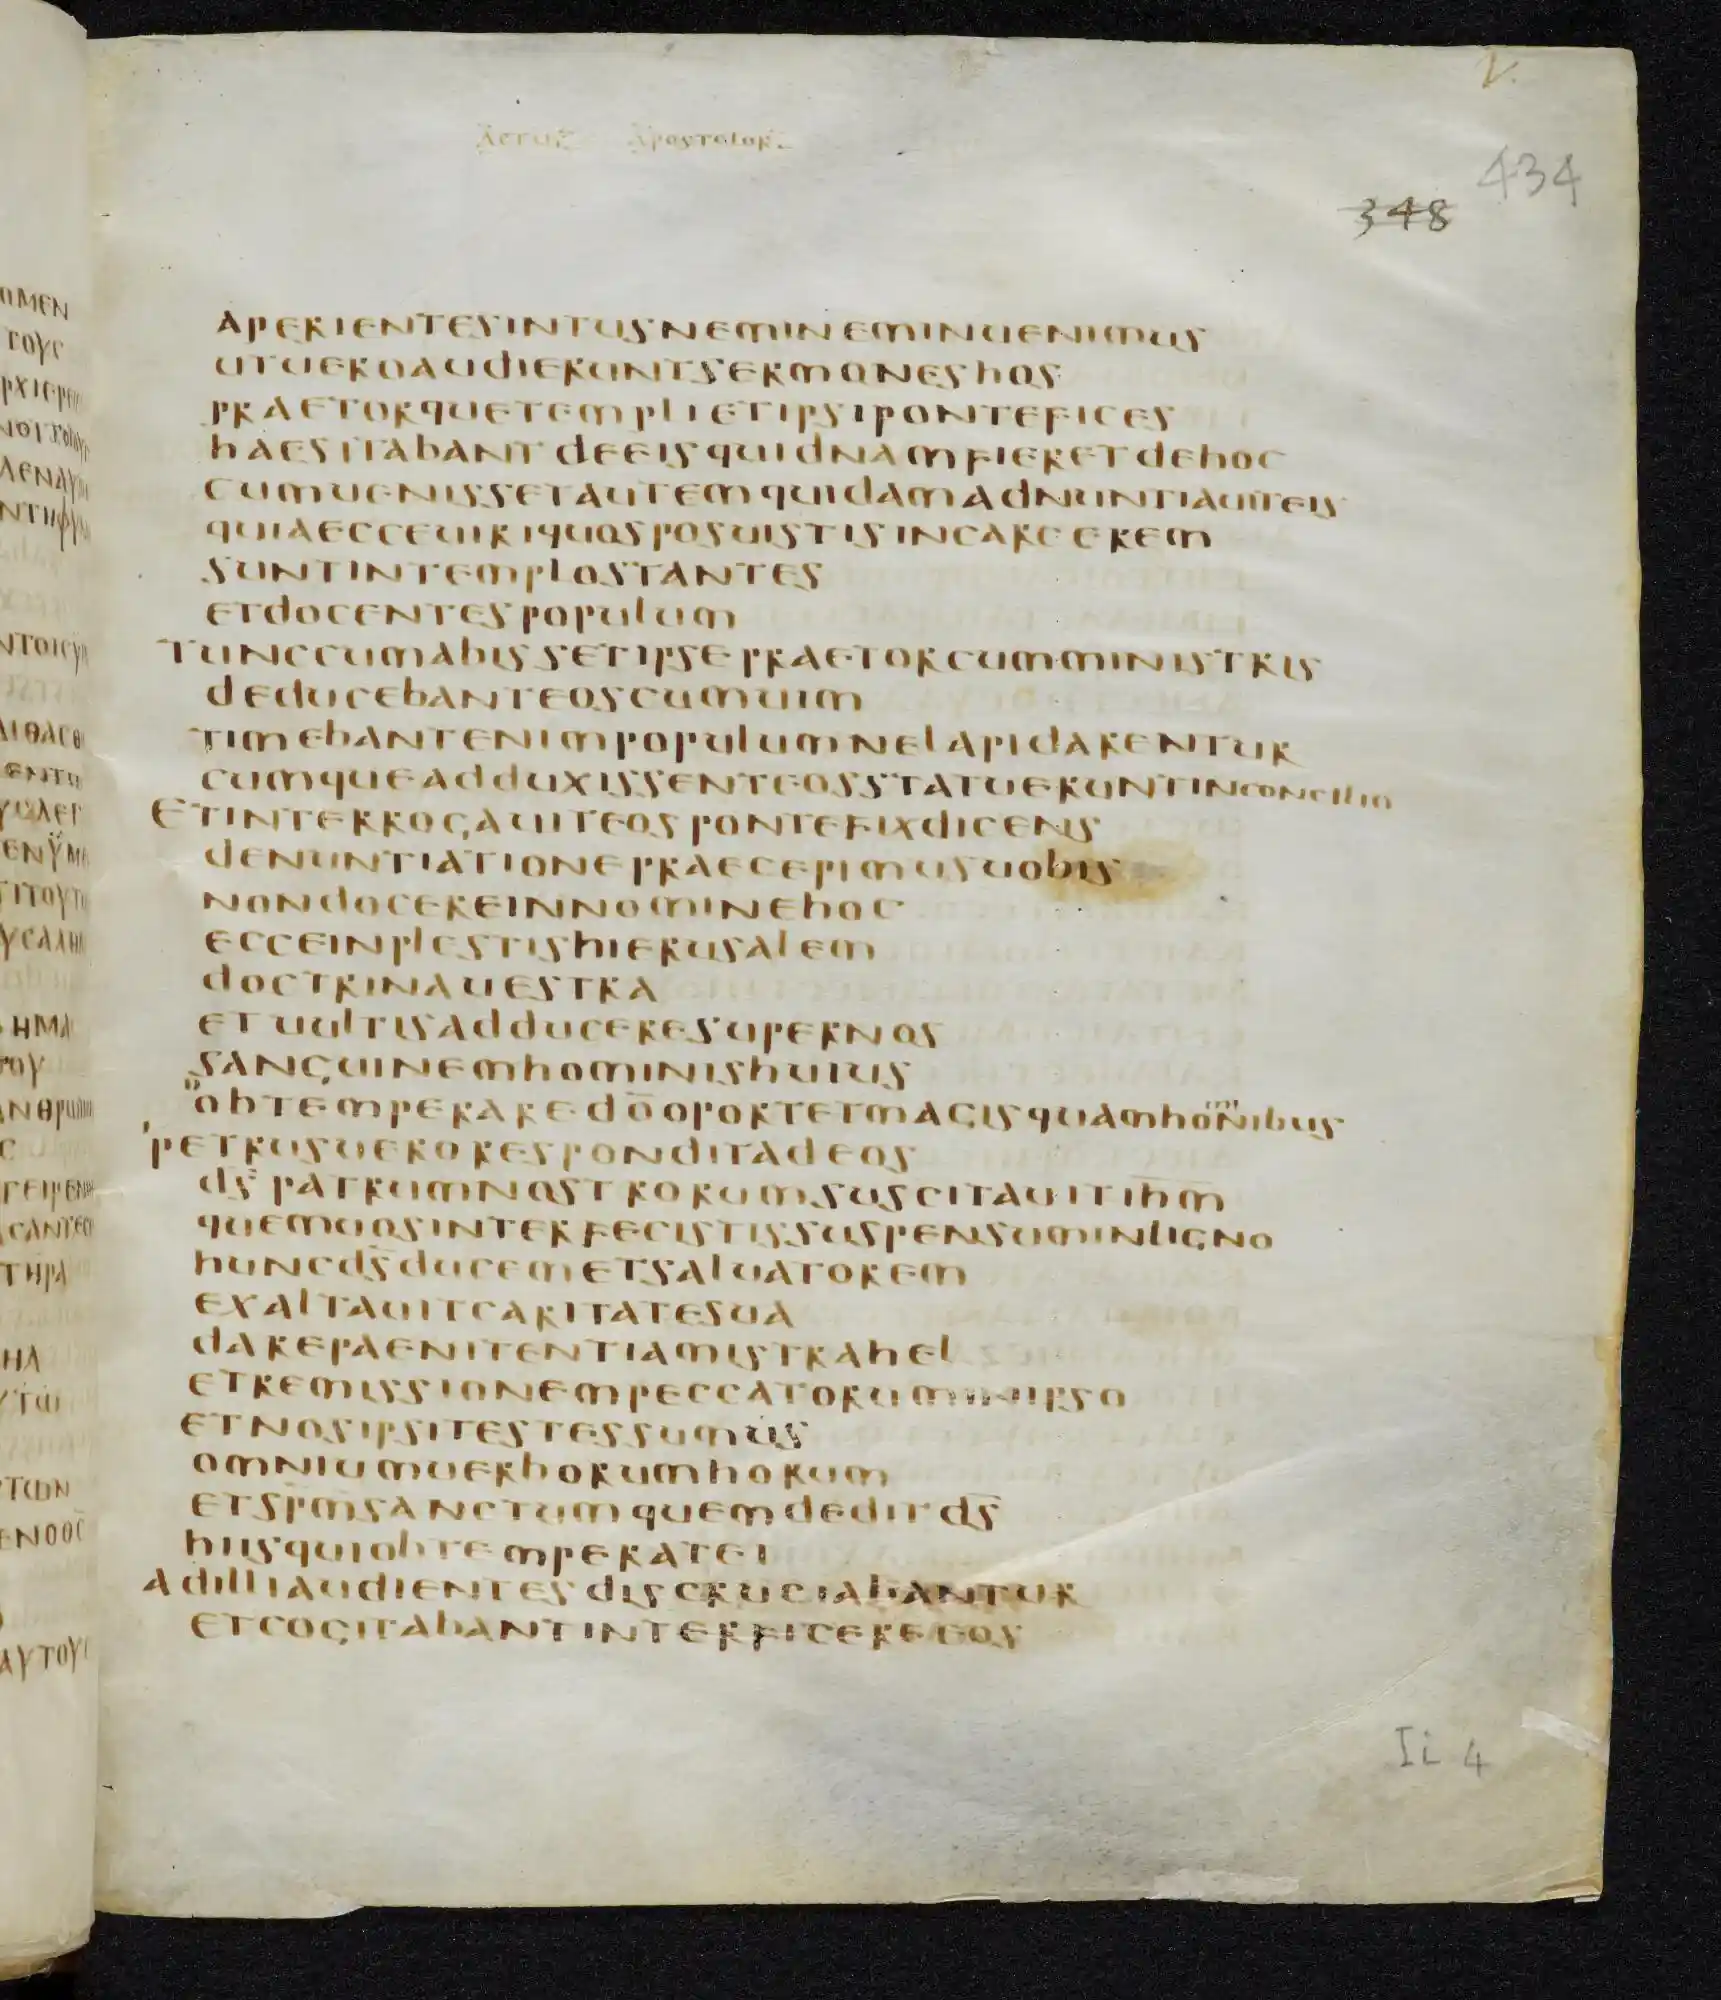 V.
Actus Apostolor.
434
348
APERIENTESINTUSNEMINEMINUENIMUS
UTUEROAUDIERUNTSERMONESHOS
PRAETORQUETEMPLIETIPSIPONTEFICES
HAESITABANTDEEISQUIDNAMFIERETDEHOC
CUMUENISSETAUTEMQUIDAMADNUNTIAUITEIS
QUIAECCEUIRIQUOSPOSUISTISINCARCEREM
SUNTINTEMPLOSTANTES
ETDOCENTESPOPULUM
TUNCCUMABISSETIPSEPRAETORCUMMINISTRIS
DEDUCEBANTEOSCUMUIM
TIMEBANTENIMPOPULUMNELAPIDARENTUR
CUMQUEADDUXISSENTEOSSTATUERUNTINCONCILIO
ETINTERROGAUITEOSPONTEFIXDICENS
DENUNTIATIONEPRAECEPIMUSUOBIS
NONDOCEREINNOMINEHOC
ECCEINPLESTISHIERUSALEM
DOCTRINAUESTRA
ETUULTISADDUCERESUPERNOS
SANGUINEMHOMINISHUIUS
OBTEMPERAREDŌOPORTETMAGISQUAMHOMINIBUS
PETRUSUERORESPONDITADEOS
DS̄PATRUMNOSTRORUMSUSCITAUITIH̄M̄
QUEMUOSINTERFECISTISSUSPENSUMINLIGNO
HUNCDS̄DUCEMETSALUATOREM
EXALTAUITCARITATESUA
DAREPAENITENTIAMISTRAHEL
ETREMISSIONEMPECCATORUMINIPSO
ETNOSIPSITESTESSUMUS
OMNIUMUERBORUMHORUM
ETSP̄M̄SANCTUMQUEMDEDITDS̄
HIISQUIOBTEMPERATEI
ADILLIAUDIENTESDISCRUCIABANTUR
ETCOGITABANTINTERFICEREEOS
Ii 4